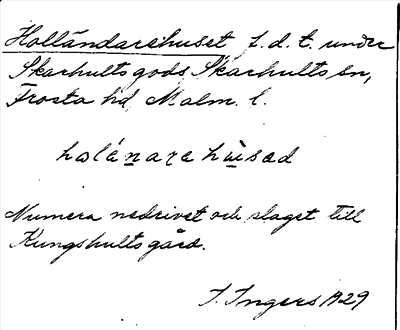 Holländarehuset f.d. t. under
Skarhults gods Skarhults sn,
Frosta hd, Malm. l.
holánarehùsəd
Numera nedrivet och slaget till
Kungshultsgård.
I. Ingers 1929